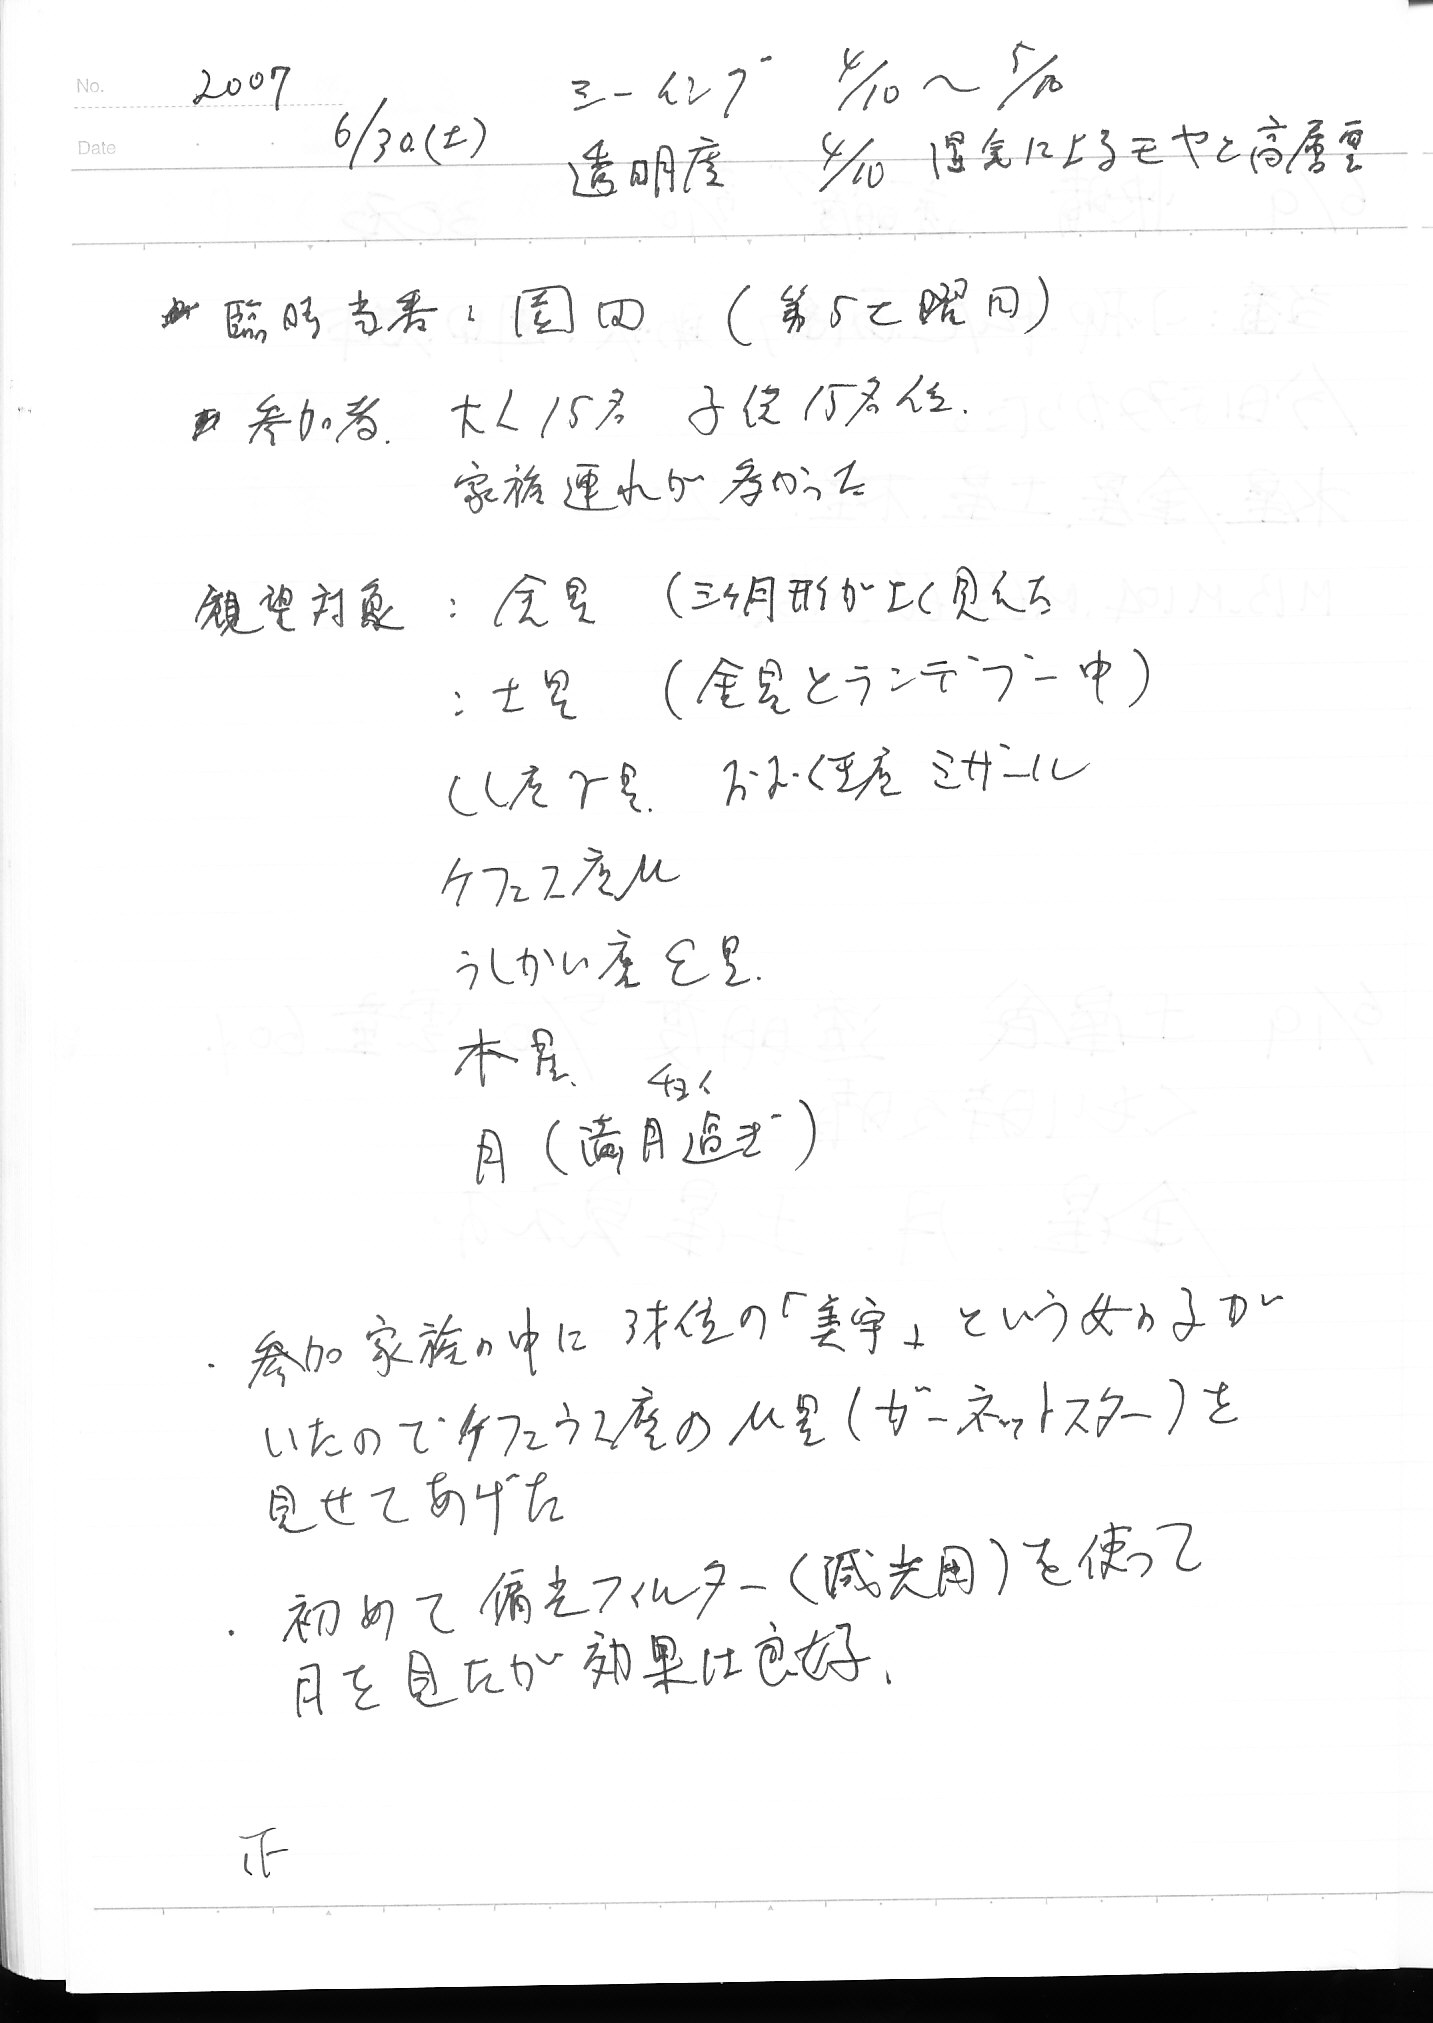 No. 2007 シーイング 4/10 〜 5/10
Date 6/30.(土) 透明度 4/10 湿気によるモヤと高層雲
臨時当番: 園田 (第5土曜日)
参加者. 大人15名 子供15名位.
家族連れが多かった
観望対象 : 金星 (三ヶ月形がよく見えた
: 土星 (金星とランデブー中)
しし座γ星. おおぐま座 ミザール
ケフェス座μ
うしかい座ε星.
木星.
チョイ
月 (満月過ぎ)
・参加家族の中に 3才位の「美宇」という女の子が
いたのでケフェウス座のμ星(ガーネットスター)を
見せてあげた
・初めて偏光フィルター(減光用)を使って
月を見たが効果は良好.